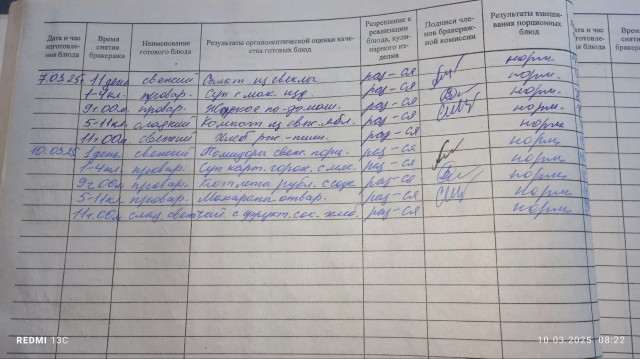 Дата и час изготовления блюда | Время снятия бракеража | Наименование готового блюда | Результаты органолептической оценки качества готовых блюд | Разрешение к реализации блюда, кулинарного изделия | Подписи членов бракеражной комиссии | Результаты взвешивания порционных блюд
7.03.25 1 день свежий Салат из свеклы раз-ся норм.
1-4кл. провар. Суп с мак. изд. раз-ся норм.
9ч 00м провар. Жаркое по-дом. раз-ся норм.
5-11кл сладкий Компот из свеж. ябл. раз-ся норм.
11ч 00м свежий Хлеб рж.-пшен. раз-ся норм
10.03.25 1 день свежий Помидоры свеж. порц. раз-ся норм
1-4кл. провар. Суп карт. горох. с мяс. раз-ся норм
9ч 00м провар. Котлета рубл. с соус раз-ся норм
5-11кл. провар. Макароны отвар. раз-ся норм
11ч.00м слад. свеж чай с фрукт. сок. хлеб. раз-ся норм
REDMI 13C
10.03.2025 08:22